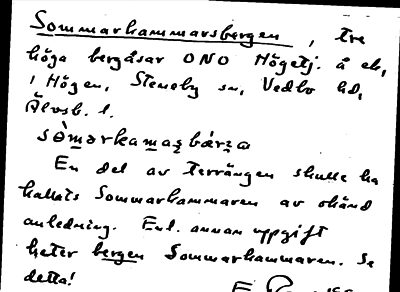 Sommarhammarsbergen, tre
höga bergåsar ONO Högetj. å ek,
i Högen, Steneby sn, Vedbo hd,
Älvsb. l.
En del av terrängen skulle ha
kallats Sommarhammaren av okänd
anledning. Enl. annan uppgift
heter bergen Sommarhammaren. Se
detta!